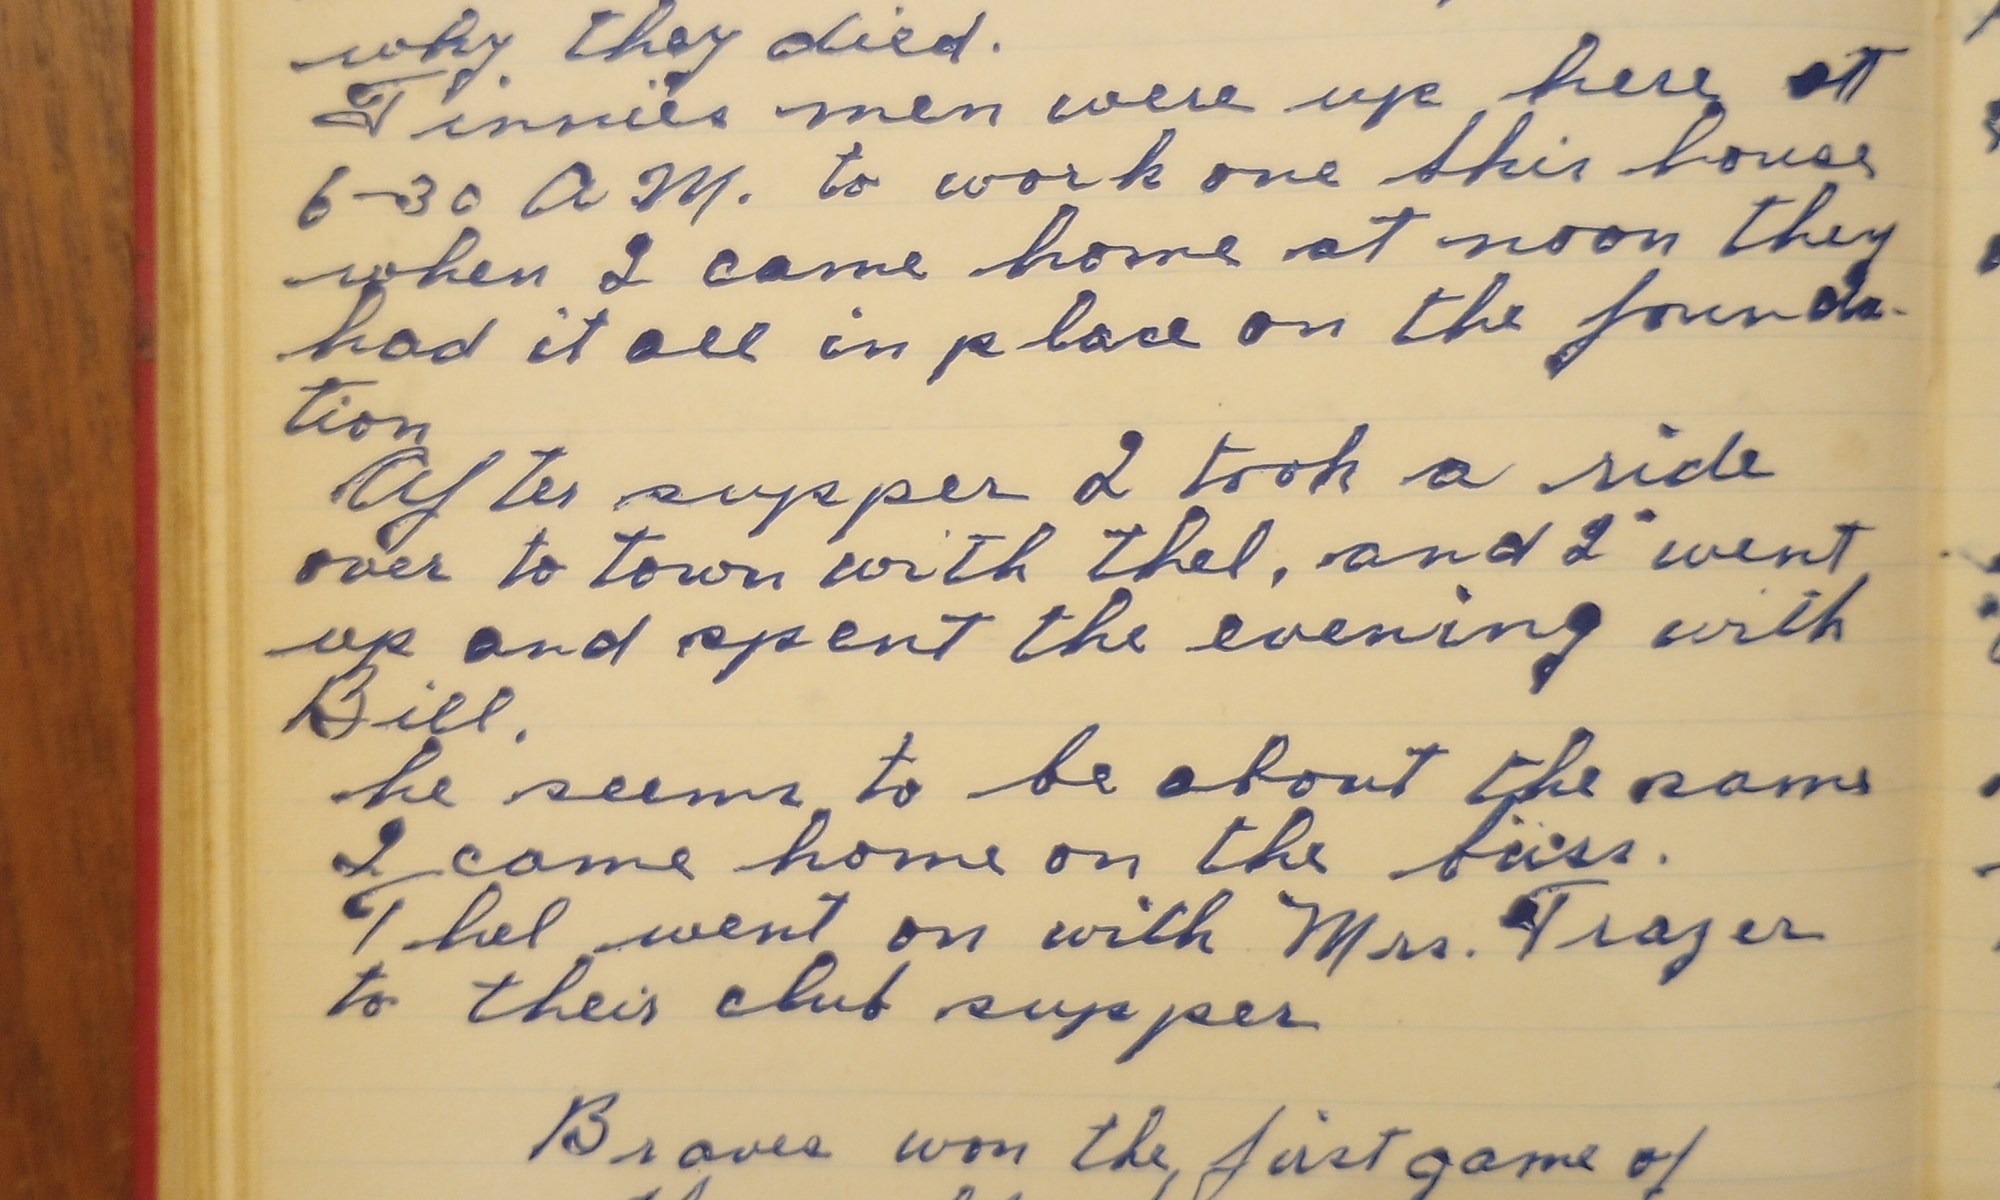 why they died.
Finnies men were up here at
6-30 A M. to work one this house
when I came home at noon they
had it all in place on the founda-
tion
After supper I took a ride
over to town with thel, and I went
up and spent the evening with
Bill.
he seems to be about the same
I came home on the buss.
Thel went on with Mrs. Frazer
to their club supper
Braves won the first game of